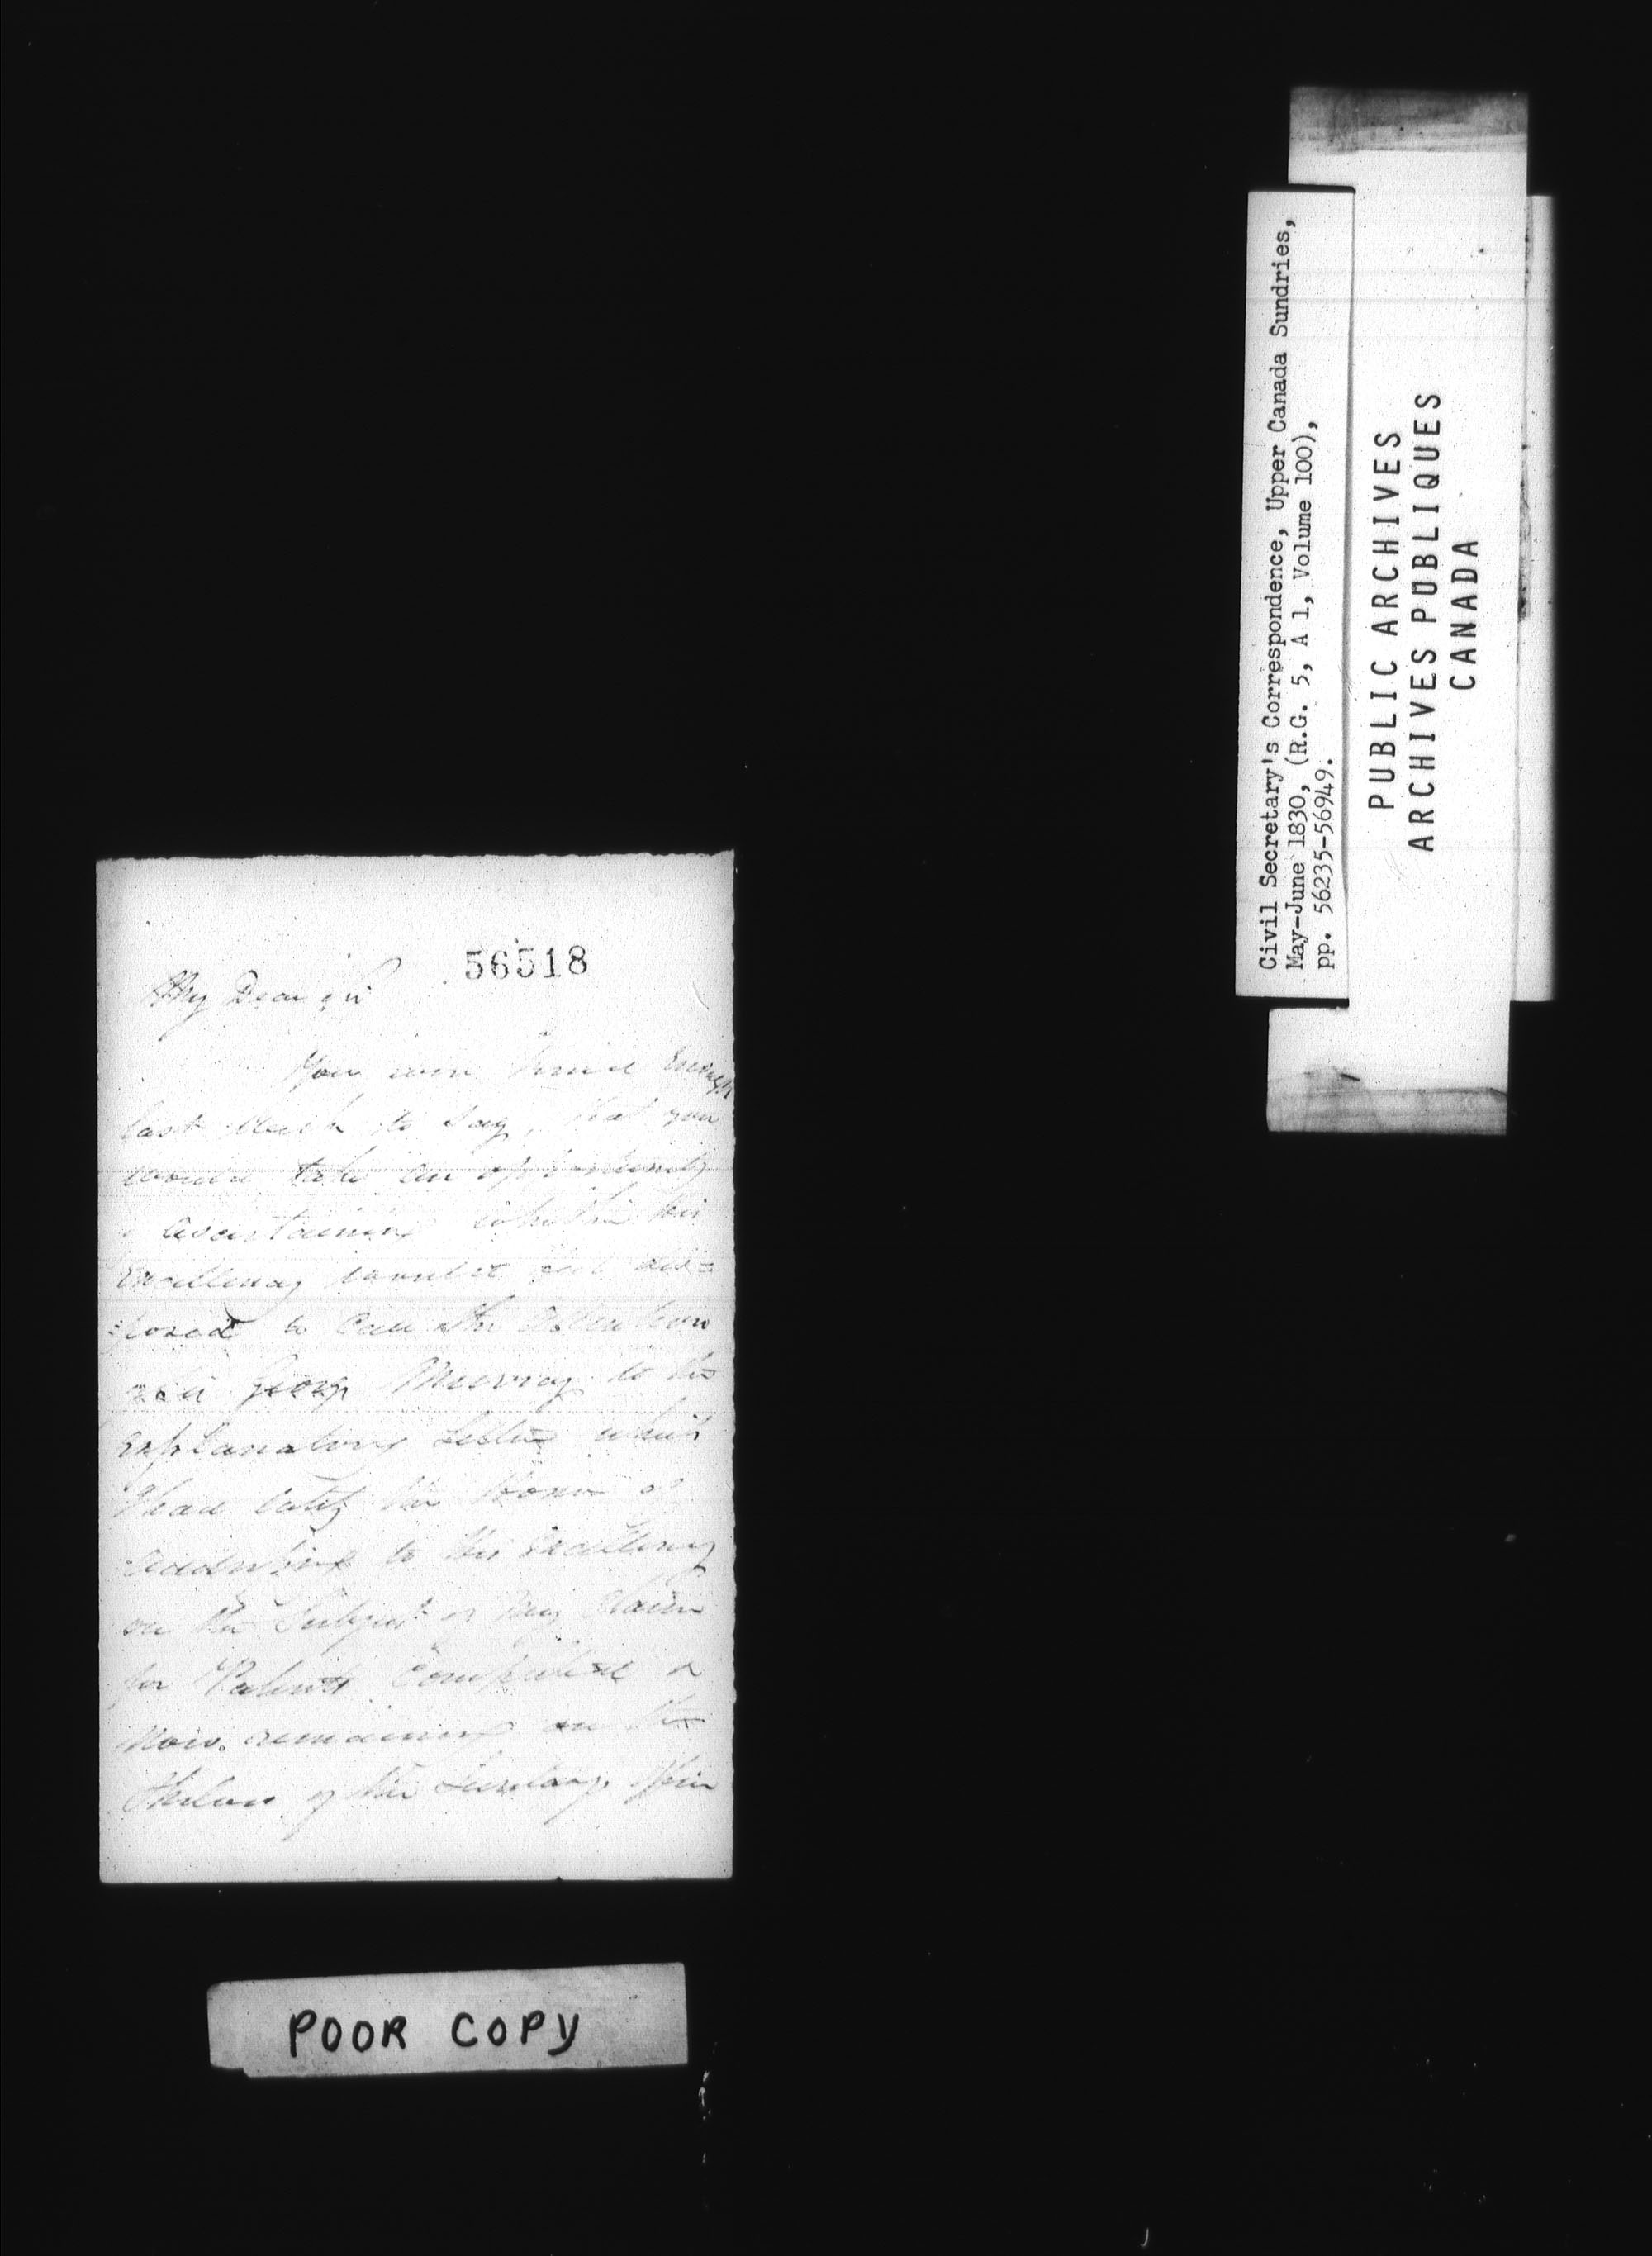 56518
My Dear Sir
You were kind enough
last week to say, that you
would take an opportunity
of ascertaining whether His
Excellency would feel dis=
=posed to call the attention
of Sir George Murray to the
explanatory Letter which
I had lately the Honor of
addressing to His Excellency
on the Subject of my Claim
for Patents Completed &
now remaining on the
Shelves of the Secretary's Office
POOR COPY
Civil Secretary's Correspondence, Upper Canada Sundries,
May-June 1830, (R.G. 5, A 1, Volume 100),
pp. 56235-56949.
PUBLIC ARCHIVES
ARCHIVES PUBLIQUES
CANADA